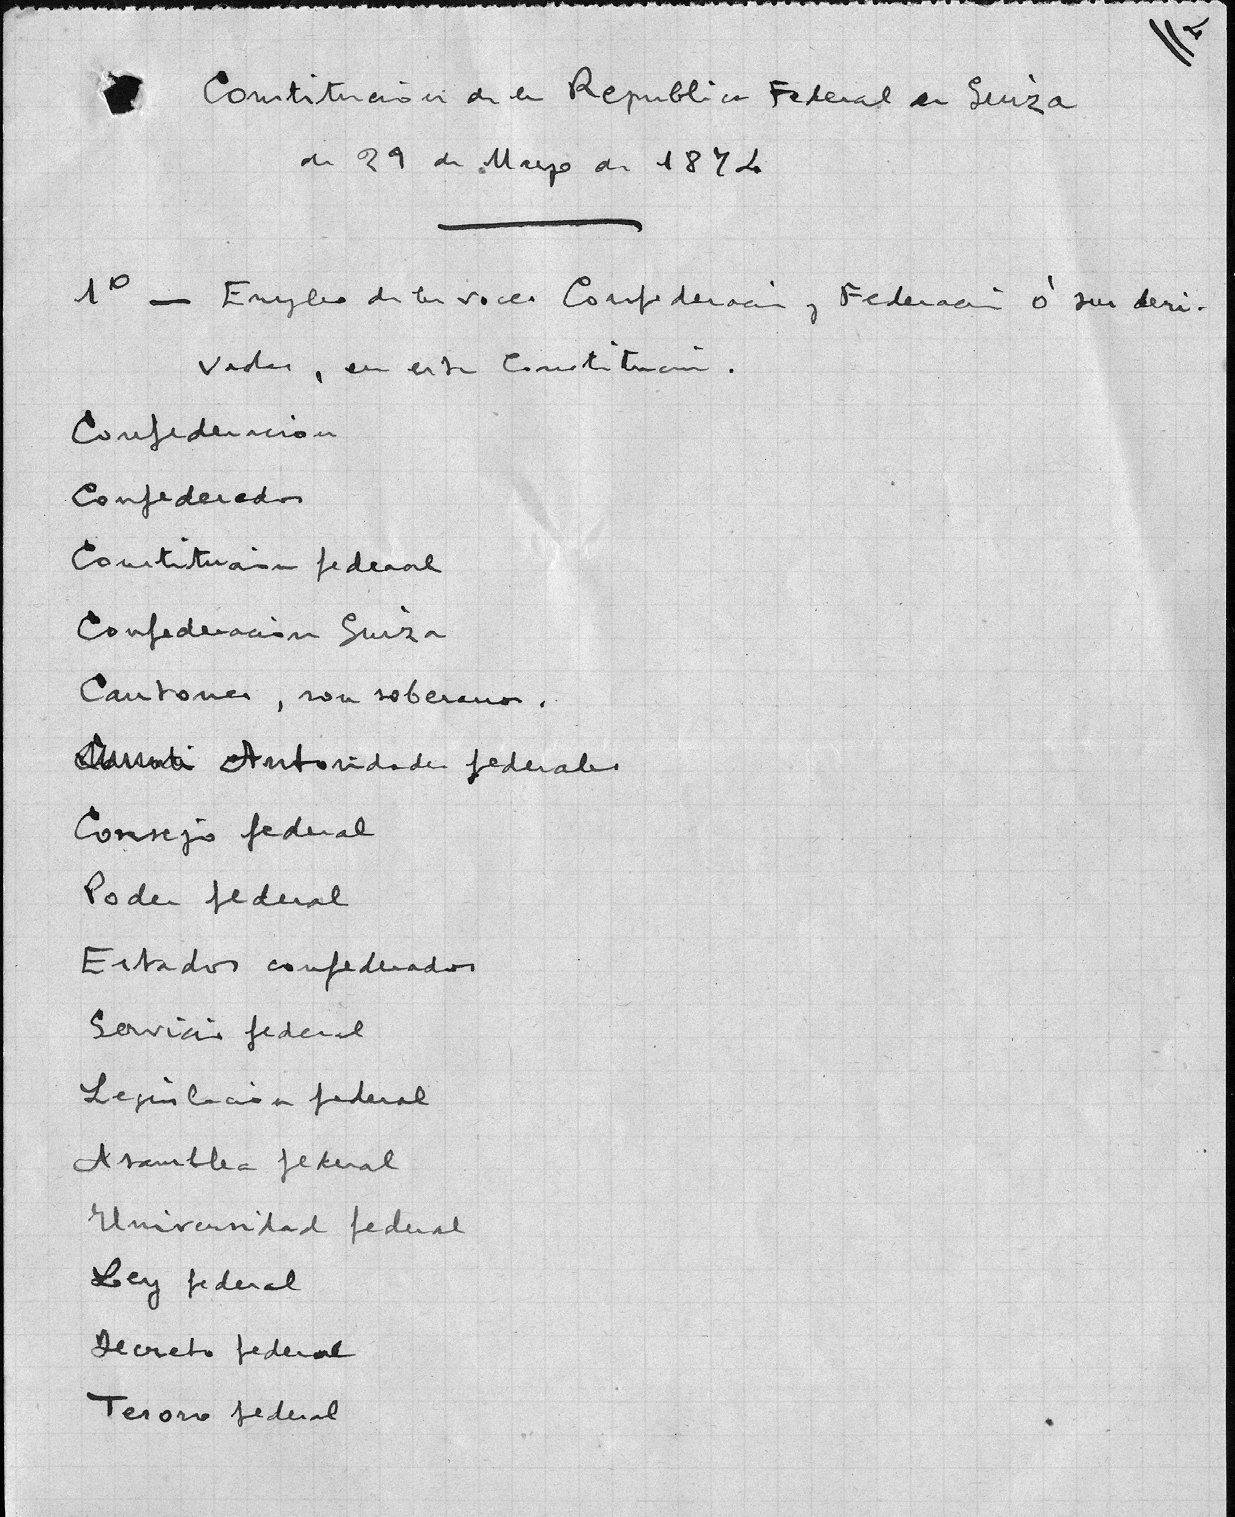 Constitución de la Republica Federal de Suiza
de 29 de Mayo de 1874
1º — Empleo de las voces Confederación y Federación ó sus deri-
vadas, en esta Constitución.
Confederación
Confederados
Constitución federal
Confederación Suiza
Cantones, son soberanos.
Autoridades federales
Consejo federal
Poder federal
Estados confederados
Servicio federal
Legislación federal
Asamblea federal
Universidad federal
Ley federal
Decreto federal
Tesoro federal